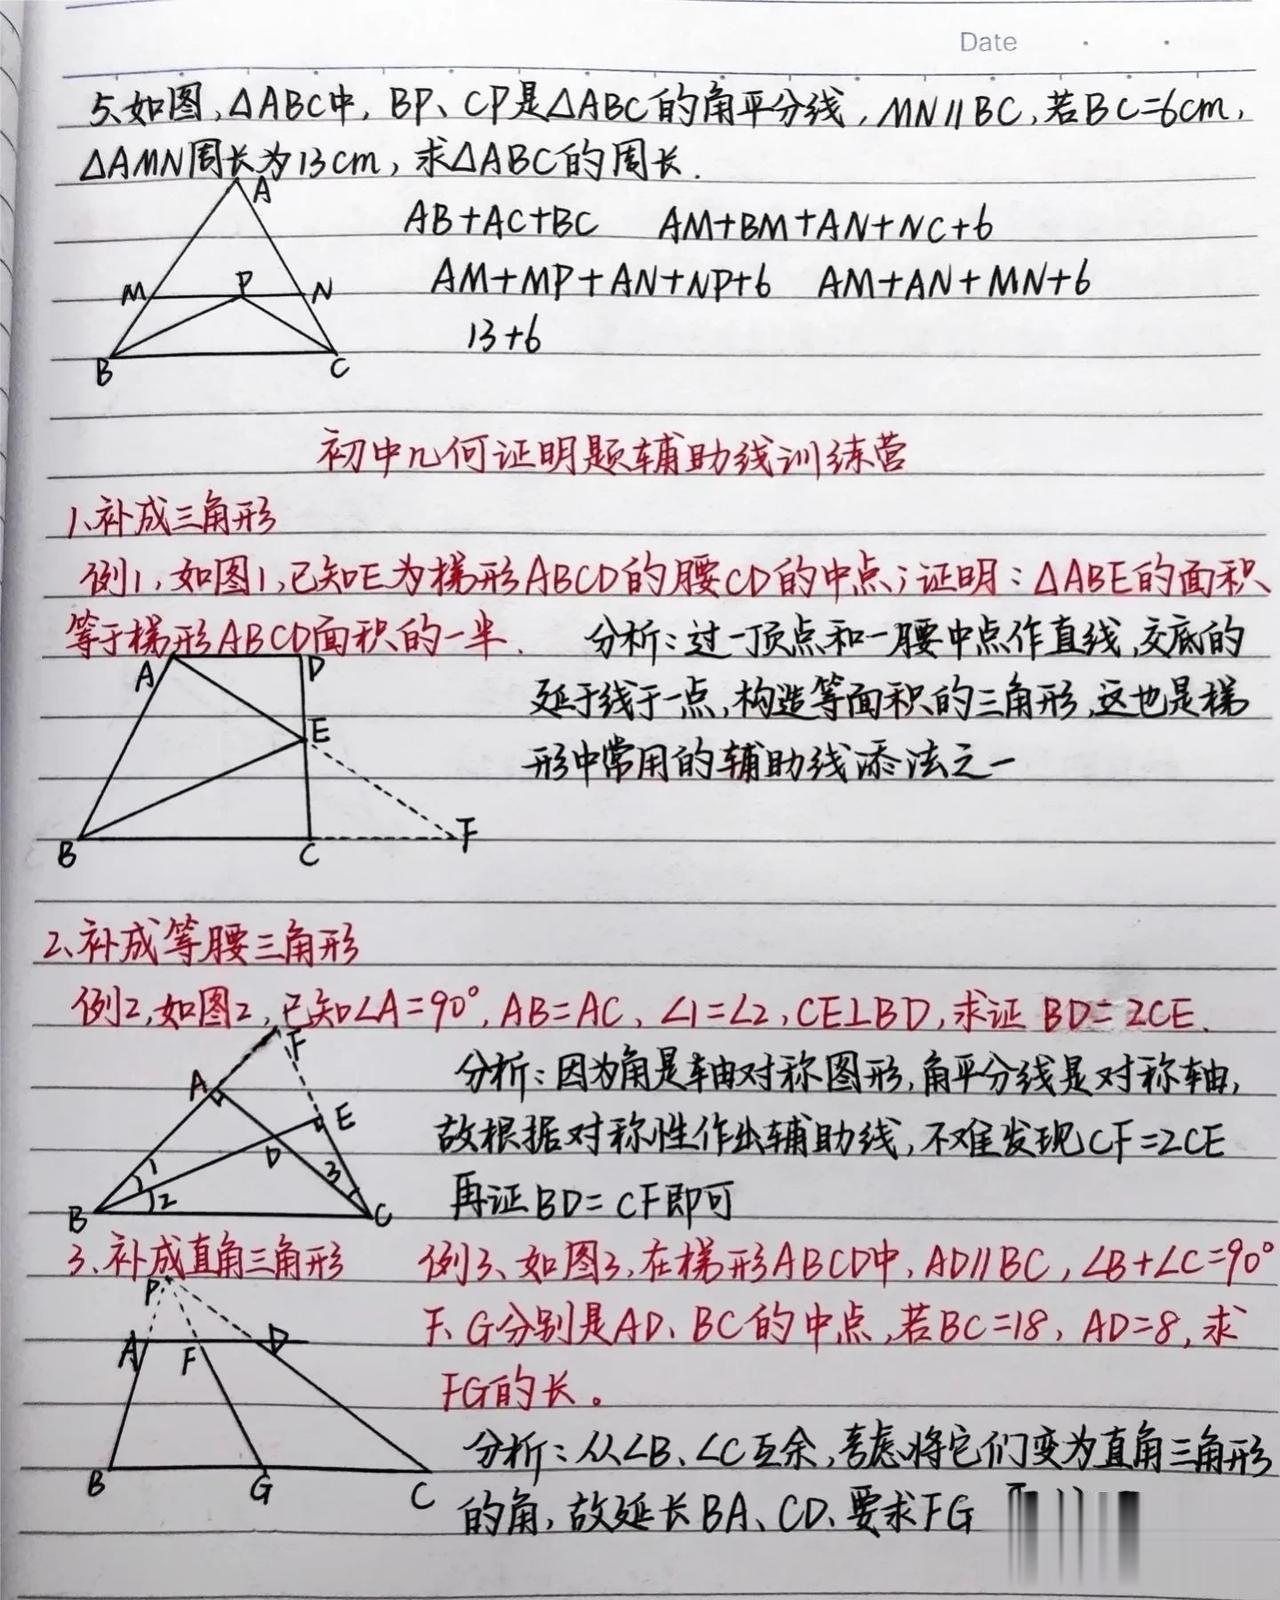 Date
5、如图,△ABC中,BP、CP是△ABC的角平分线,MN∥BC,若BC=6cm,
△AMN周长为13cm,求△ABC的周长.
A
M P N
B C
AB+AC+BC AM+BM+AN+NC+6
AM+MP+AN+NP+6 AM+AN+MN+6
13+6
初中几何证明题辅助线训练营
1、补成三角形
例1,如图1,已知E为梯形ABCD的腰CD的中点;证明:△ABE的面积
等于梯形ABCD面积的一半.
分析:过一顶点和一腰中点作直线,交底的
延于线于一点,构造等面积的三角形,这也是梯
形中常用的辅助线添法之一
A D
E
B C F
2、补成等腰三角形
例2,如图2,已知∠A=90°,AB=AC,∠1=∠2,CE⊥BD,求证BD=2CE.
分析:因为角是轴对称图形,角平分线是对称轴,
故根据对称性作出辅助线,不难发现CF=2CE
再证BD=CF即可
F
A
E
D
1 3
2
B C
3、补成直角三角形
例3、如图3,在梯形ABCD中,AD∥BC,∠B+∠C=90°
F、G分别是AD、BC的中点,若BC=18,AD=8,求
FG的长。
P
A F D
B G C
分析:从∠B、∠C互余,考虑将它们变为直角三角形
的角,故延长BA、CD、要求FG